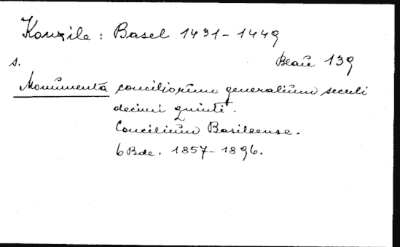 Konzile: Basel 1431-1449
Blau 139
s.
Monumenta conciliorum generalium seculi
decimi quinti.
Concilium Basileense.
6 Bde. 1857-1896.